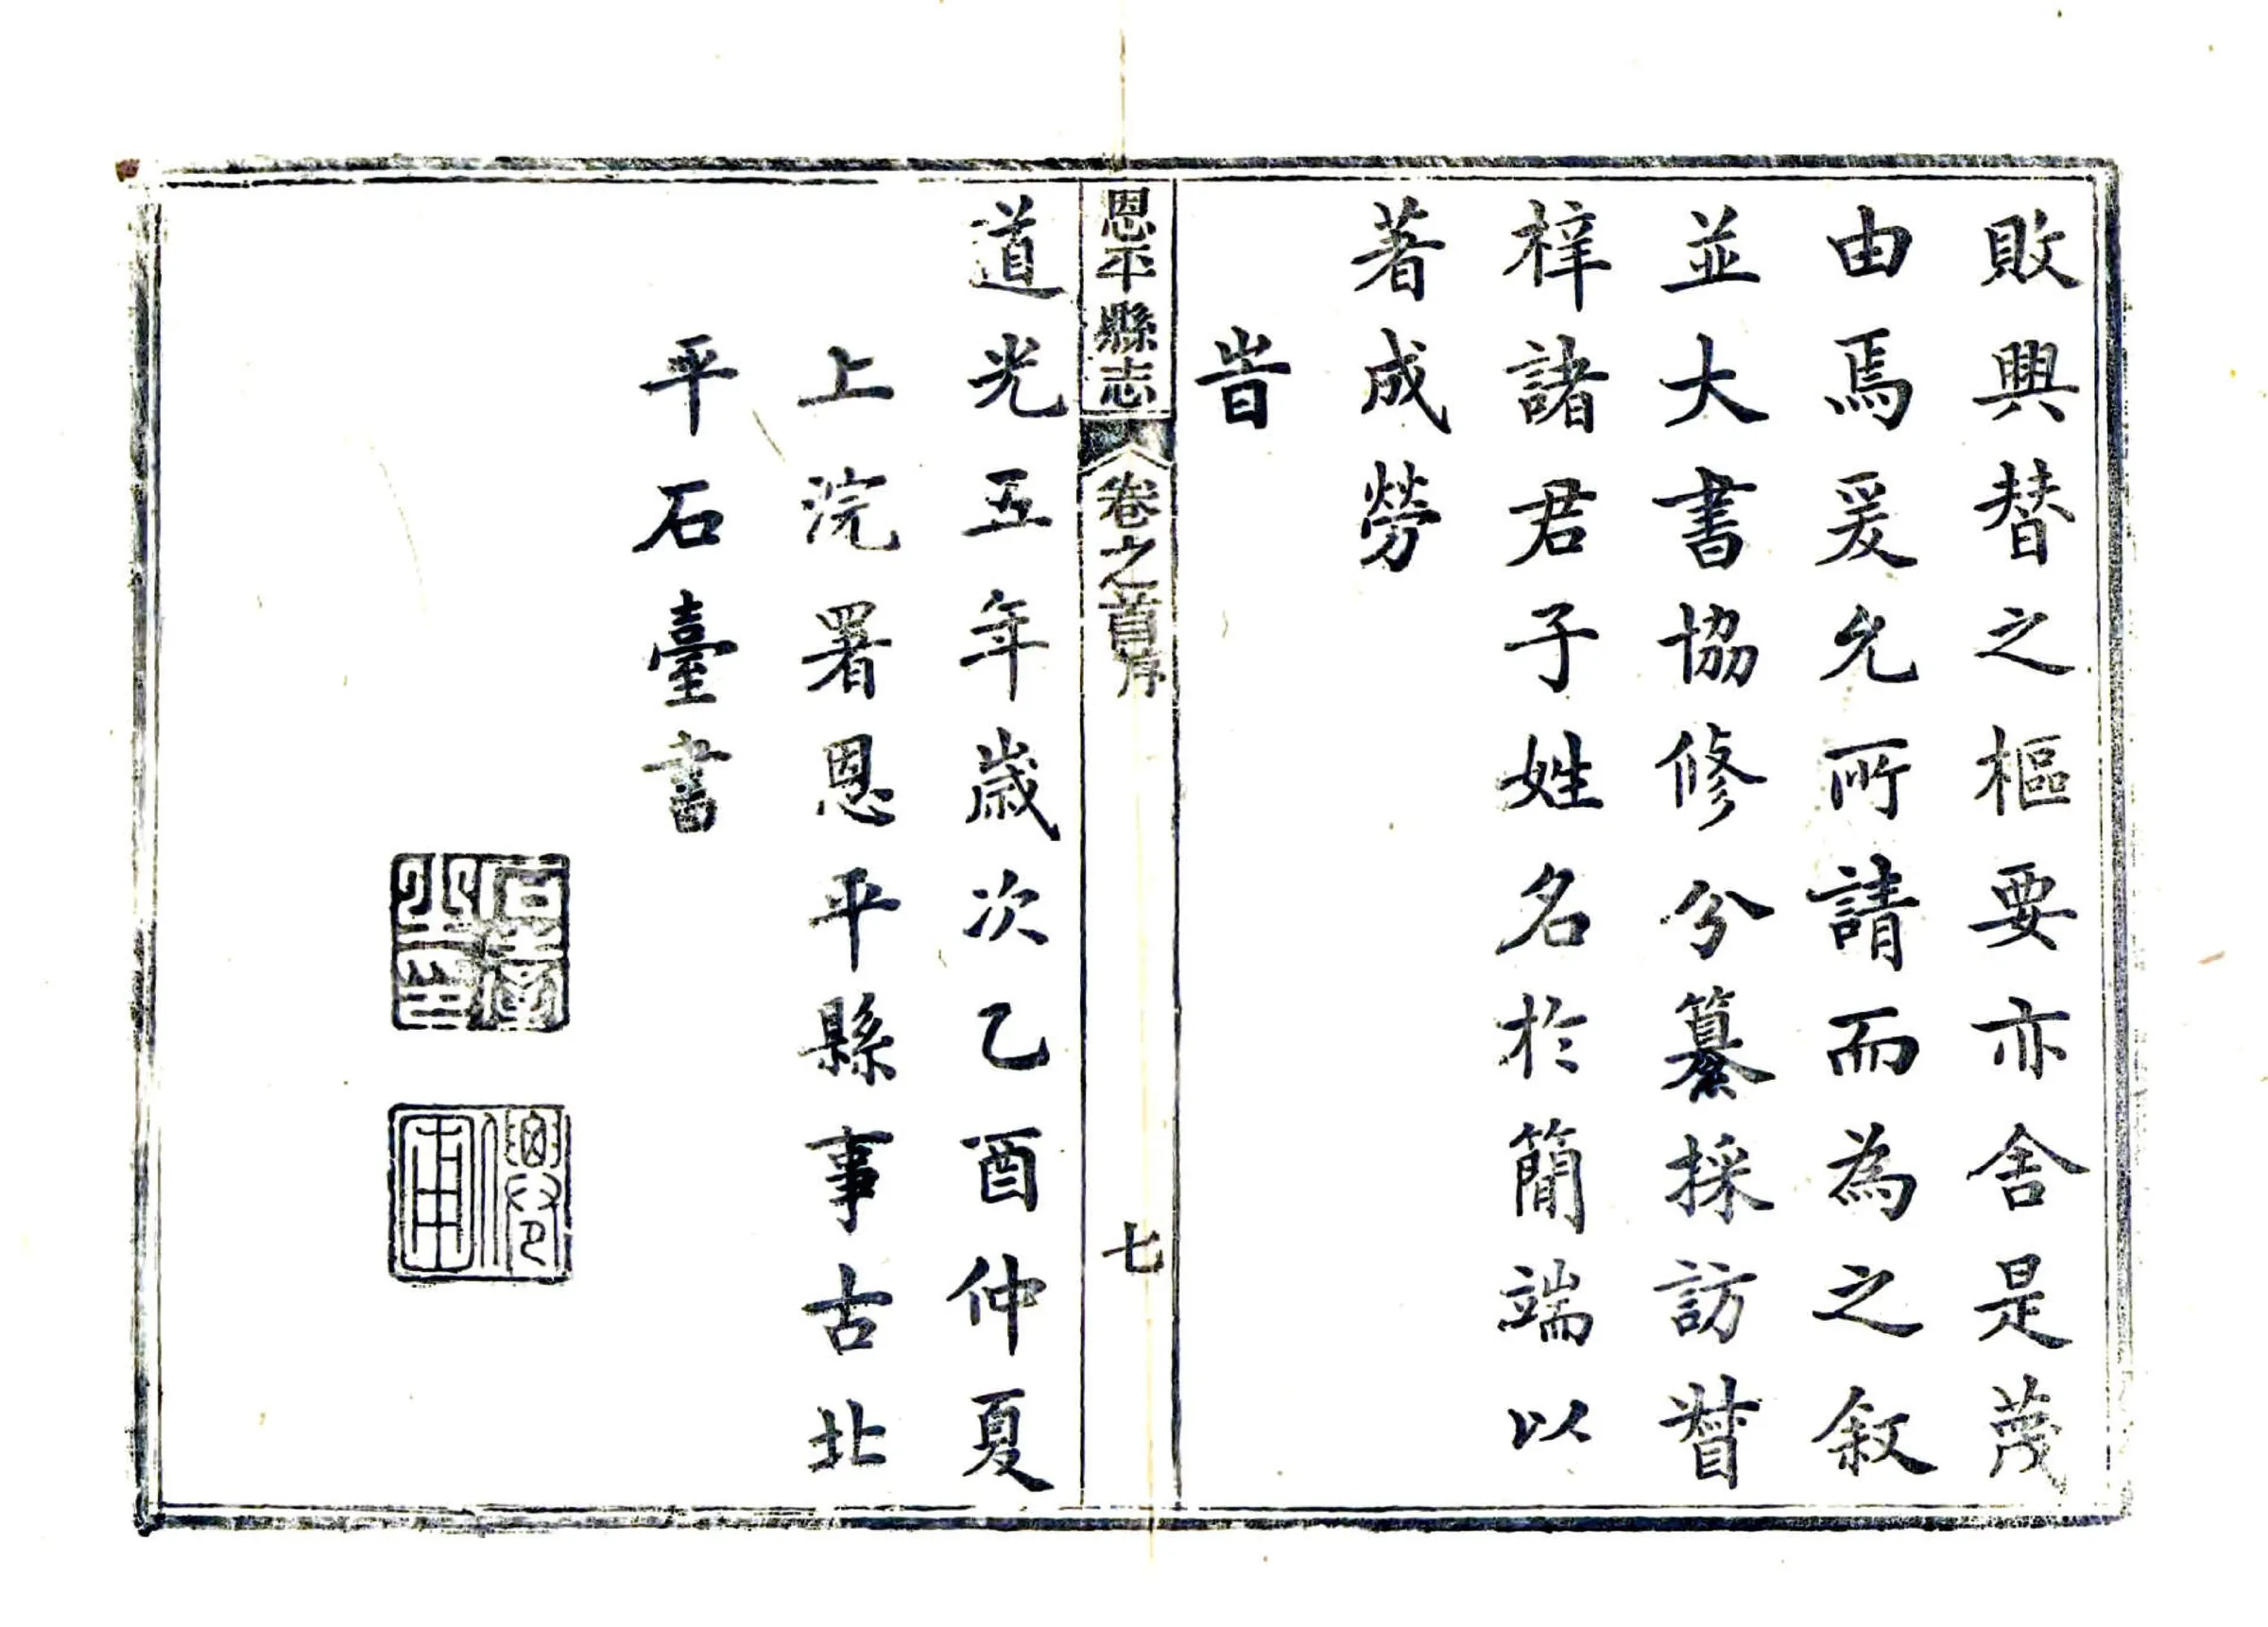 敗興替之樞要亦舍是蔑
由焉爰允所請而為之敘
並大書協修分纂採訪督
梓諸君子姓名於簡端以
著成勞
旹
恩平縣志
卷之首
序
七
道光五年歲次乙酉仲夏
上浣署恩平縣事古北
平石臺書
石臺之印